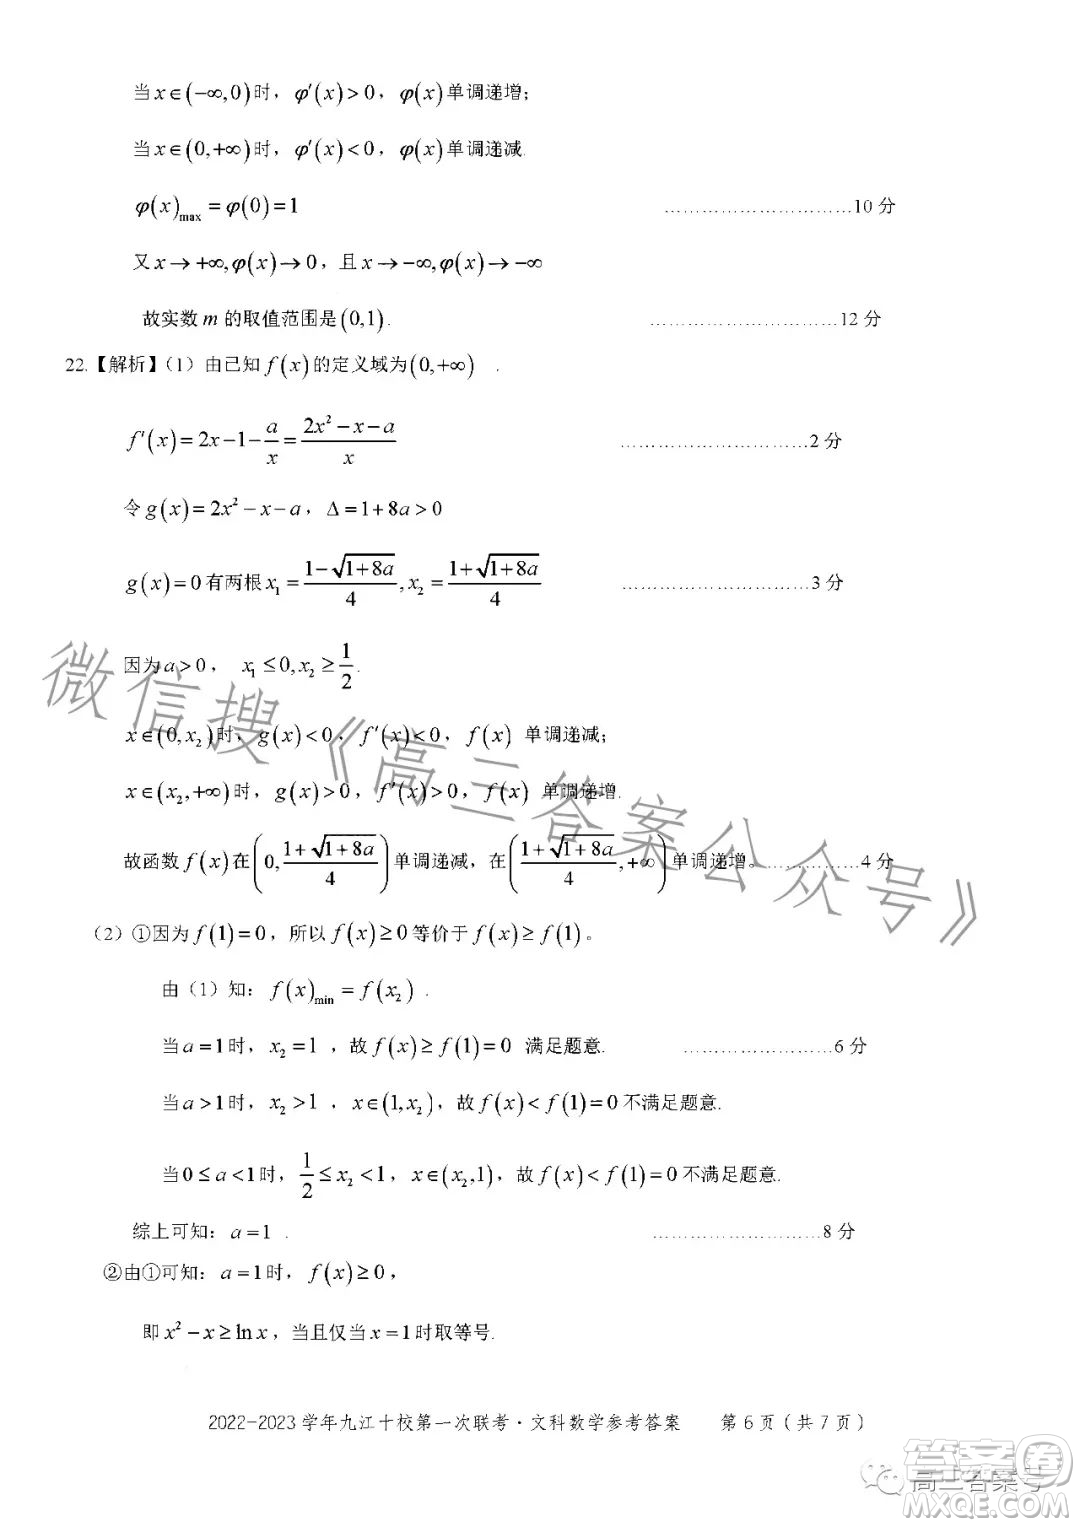 当 x∈(−∞,0) 时，φ′(x)>0，φ(x) 单调递增；
当 x∈(0,+∞) 时，φ′(x)<0，φ(x) 单调递减.
φ(x)max = φ(0) = 1 …………………………10 分
又 x→+∞, φ(x)→0，且 x→−∞, φ(x)→−∞
故实数 m 的取值范围是 (0,1). …………………………12 分
22.【解析】（1）由已知 f(x) 的定义域为 (0,+∞) .
f′(x) = 2x−1−a/x = (2x²−x−a)/x …………………………2 分
令 g(x) = 2x²−x−a，Δ=1+8a>0
g(x)=0 有两根 x₁ = (1−√(1+8a))/4, x₂ = (1+√(1+8a))/4 …………………………3 分
因为 a>0， x₁≤0, x₂≥1/2.
x∈(0,x₂) 时，g(x)<0，f′(x)<0，f(x) 单调递减；
x∈(x₂,+∞) 时，g(x)>0，f′(x)>0，f(x) 单调递增.
故函数 f(x) 在 (0, (1+√(1+8a))/4) 单调递减，在 ((1+√(1+8a))/4, +∞) 单调递增。……………4 分
（2）①因为 f(1)=0，所以 f(x)≥0 等价于 f(x)≥f(1)。
由（1）知：f(x)min = f(x₂) .
当 a=1 时，x₂=1 ，故 f(x)≥f(1)=0 满足题意. ……………………6 分
当 a>1 时，x₂>1 ，x∈(1,x₂)，故 f(x)<f(1)=0 不满足题意.
当 0≤a<1 时，1/2≤x₂<1，x∈(x₂,1)，故 f(x)<f(1)=0 不满足题意.
综上可知：a=1 . ………………………8 分
②由①可知：a=1 时，f(x)≥0，
即 x²−x≥ln x，当且仅当 x=1 时取等号.
2022-2023 学年九江十校第一次联考·文科数学参考答案 第 6 页（共 7 页）
微信搜《高三答案公众号》
高三答案号
答案圈
MXQE.COM